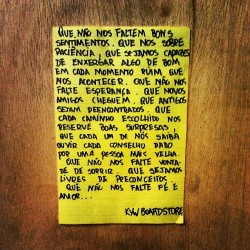 QUE NÃO NOS FALTEM BONS
SENTIMENTOS. QUE NOS SOBRE
PACIÊNCIA, QUE SEJAMOS CAPAZES
DE ENXERGAR ALGO DE BOM
EM CADA MOMENTO RUIM QUE
NOS ACONTECER. QUE NÃO NOS
FALTE ESPERANÇA. QUE NOVOS
AMIGOS CHEGUEM, QUE ANTIGOS
SEJAM REENCONTRADOS. QUE
CADA CAMINHO ESCOLHIDO NOS
RESERVE BOAS SURPRESAS,
QUE CADA UM DE NÓS SAIBA
OUVIR CADA CONSELHO DADO
POR UMA PESSOA MAIS VELHA.
QUE NÃO NOS FALTE VONTA-
DE DE SORRIR. QUE SEJAMOS
LIVRES DE PRECONCEITOS
QUE NÃO NOS FALTE FÉ E
AMOR...
KVW BOARDSTORE